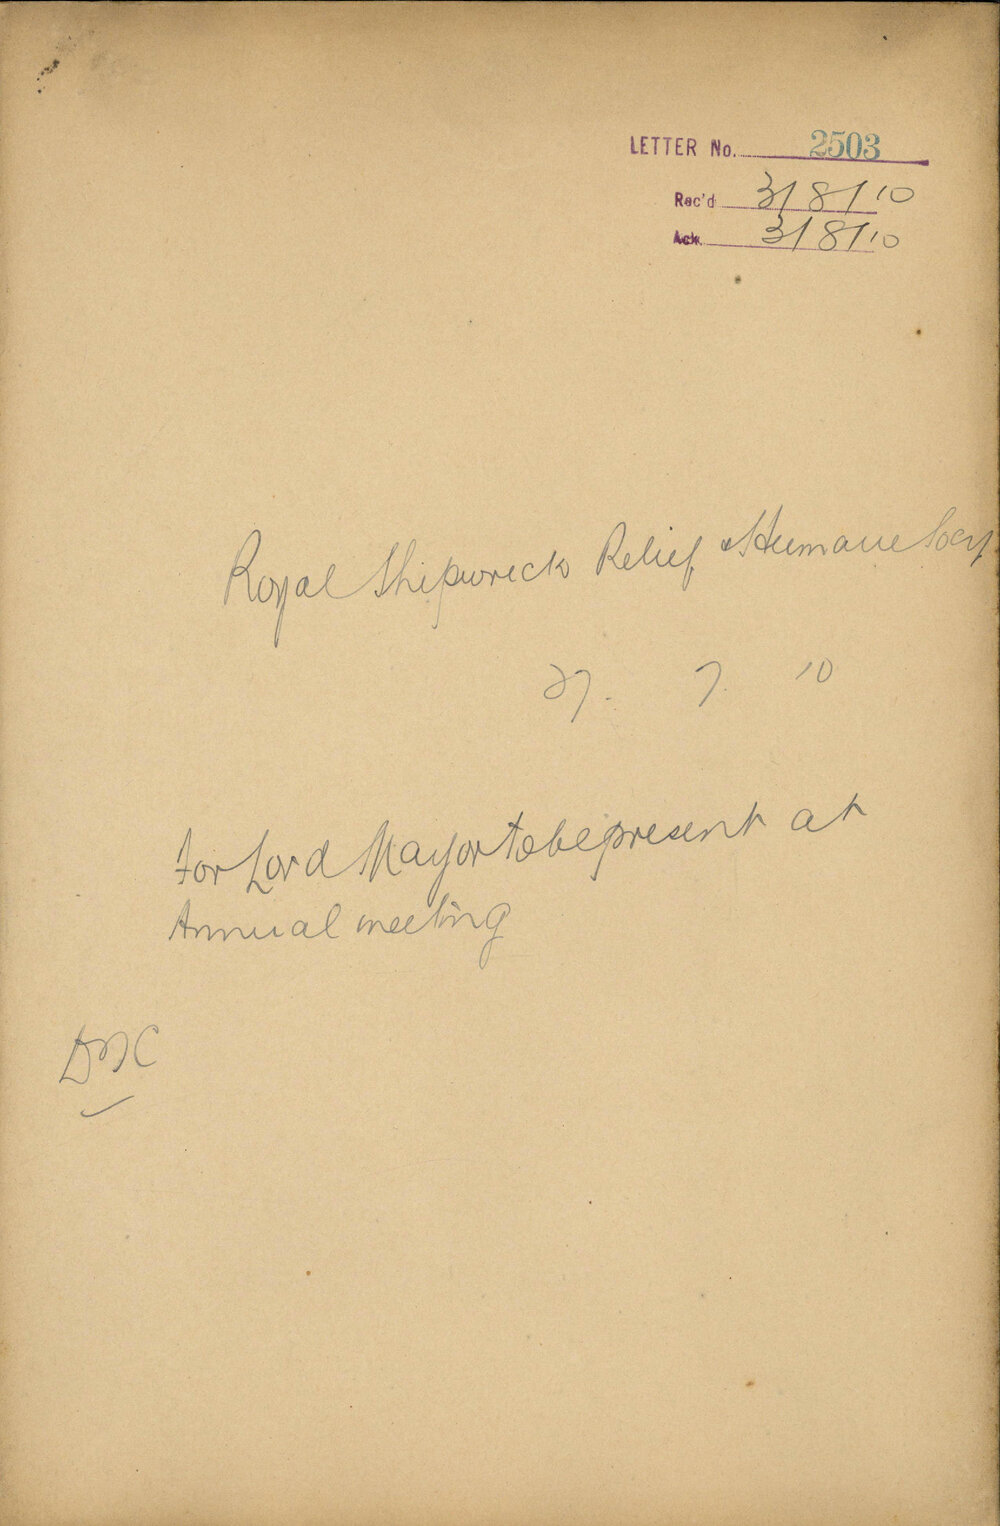 LETTER No. 2503
Rec'd 3/8/10
Ack. 3/8/10
Royal Shipwreck Relief & Humane Socy
27. 7. 10
For Lord Mayor to be present at
Annual meeting